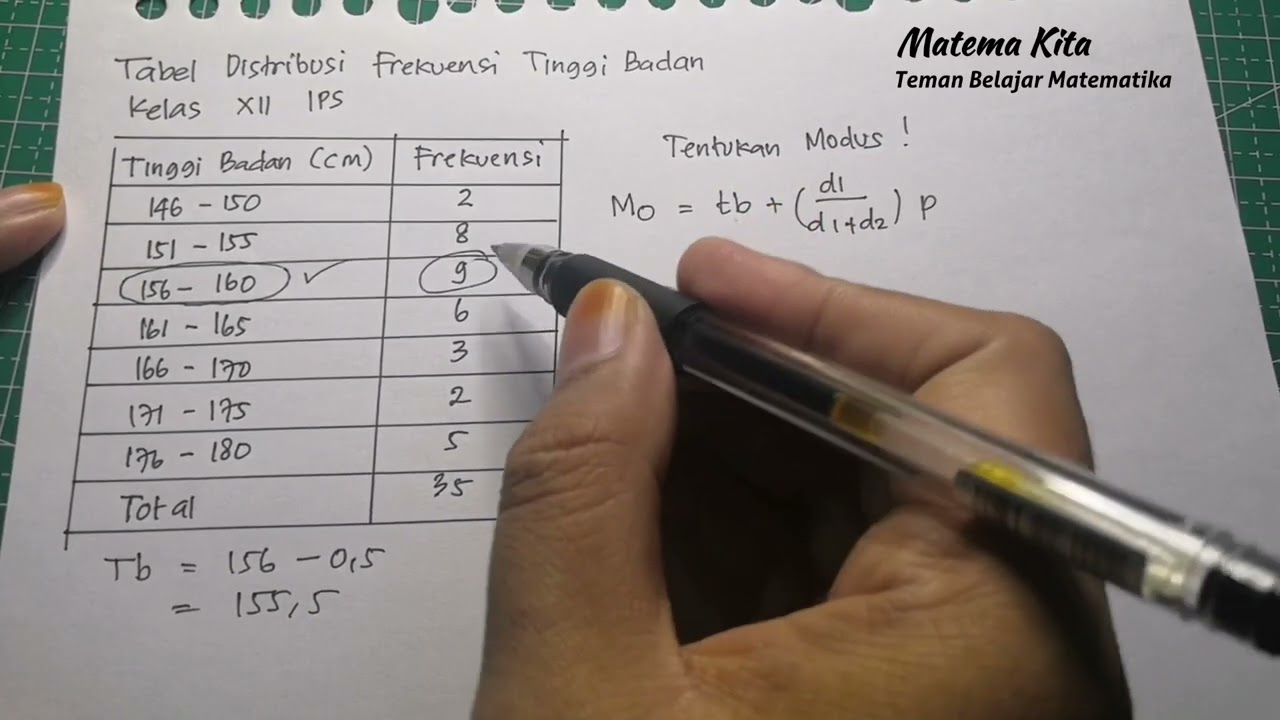 Matema Kita
Teman Belajar Matematika
Tabel Distribusi Frekuensi Tinggi Badan
Kelas XII IPS
Tentukan Modus !
Mo = tb + (d1/d1+d2) p
Tinggi Badan (cm) Frekuensi
146 - 150 2
151 - 155 8
156 - 160 ✓ 9
161 - 165 6
166 - 170 3
171 - 175 2
176 - 180 5
Total 35
Tb = 156 - 0,5
= 155,5